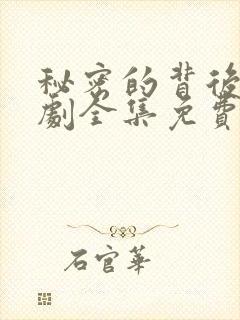 秘密的背後
劇全集免費
石官華